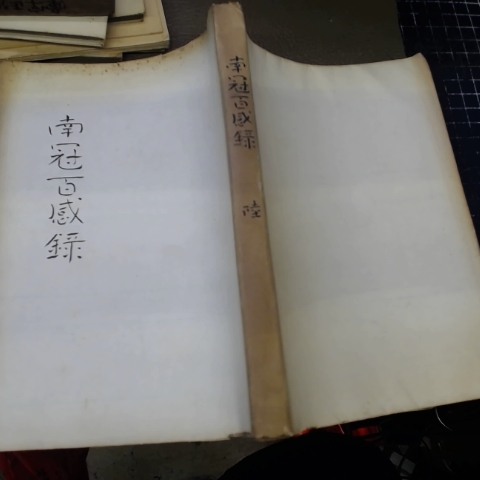 南冠百感錄
南冠百感錄
陸